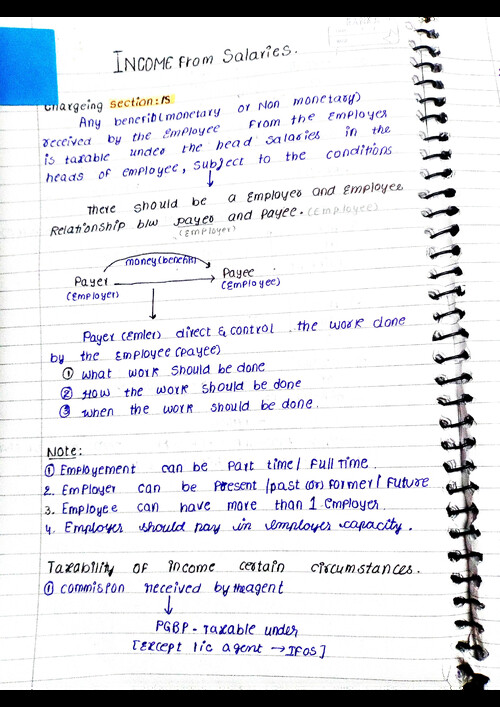 INCOME From Salaries.
Chargeing section:15
Any benefit(monetary or Non monetary)
received by the Employee From the Employer
is taxable under the head Salaries in the
heads of employee, subject to the conditions
There should be a Employer and Employee
Relationship b/w payer and payee. (Employee)
(Employer)
money(benefit)
Payer Payee
(Employer) (Employee)
Payer (Emler) direct & control the work done
by the Employee (payee)
① what work should be done
② How the work should be done
③ when the work should be done.
Note:
① Employement can be Part time/ Full Time.
2. Employer can be Present /past (or) Former/ Future
3. Employee can have more than 1 employer.
4. Employer should pay in employer capacity.
Taxability of income certain circumstances.
① commision received by the agent
PGBP - Taxable under
[Except lic agent → IFOS]